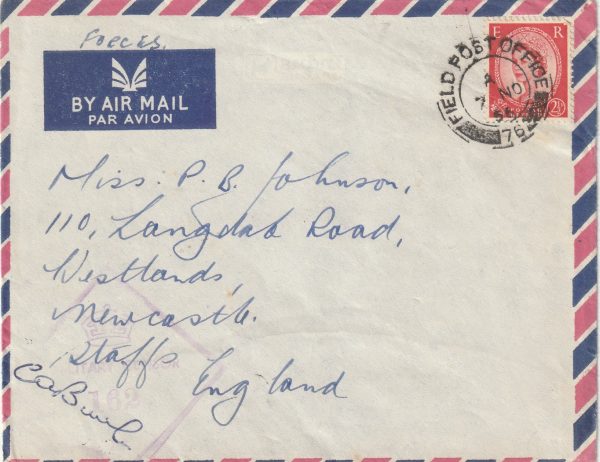 FORCES.
BY AIR MAIL
PAR AVION
E R
2½
FIELD POST OFFICE
NO
Miss. P. B. Johnson,
110, Langdale Road,
Westlands,
Newcastle.
Staffs
England
162